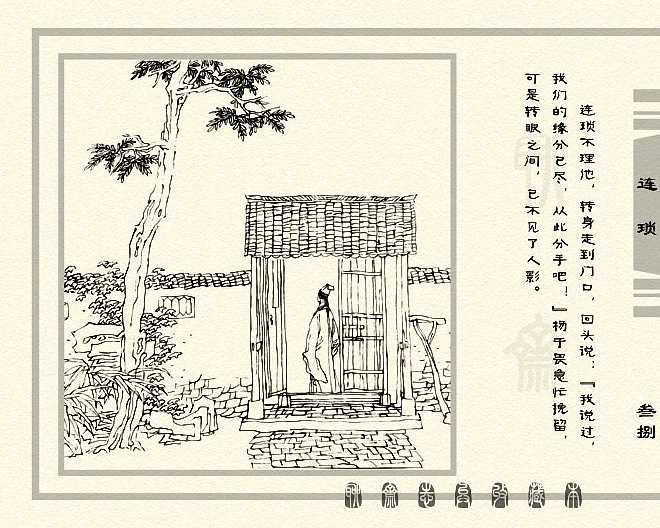 连琐不理他，转身走到门口，回头说：『我说过，
我们的缘分已尽，从此分手吧！』杨于畏急忙挽留，
可是转眼之间，已不见了人影。
连琐
叁捌
聊斋志异收藏本